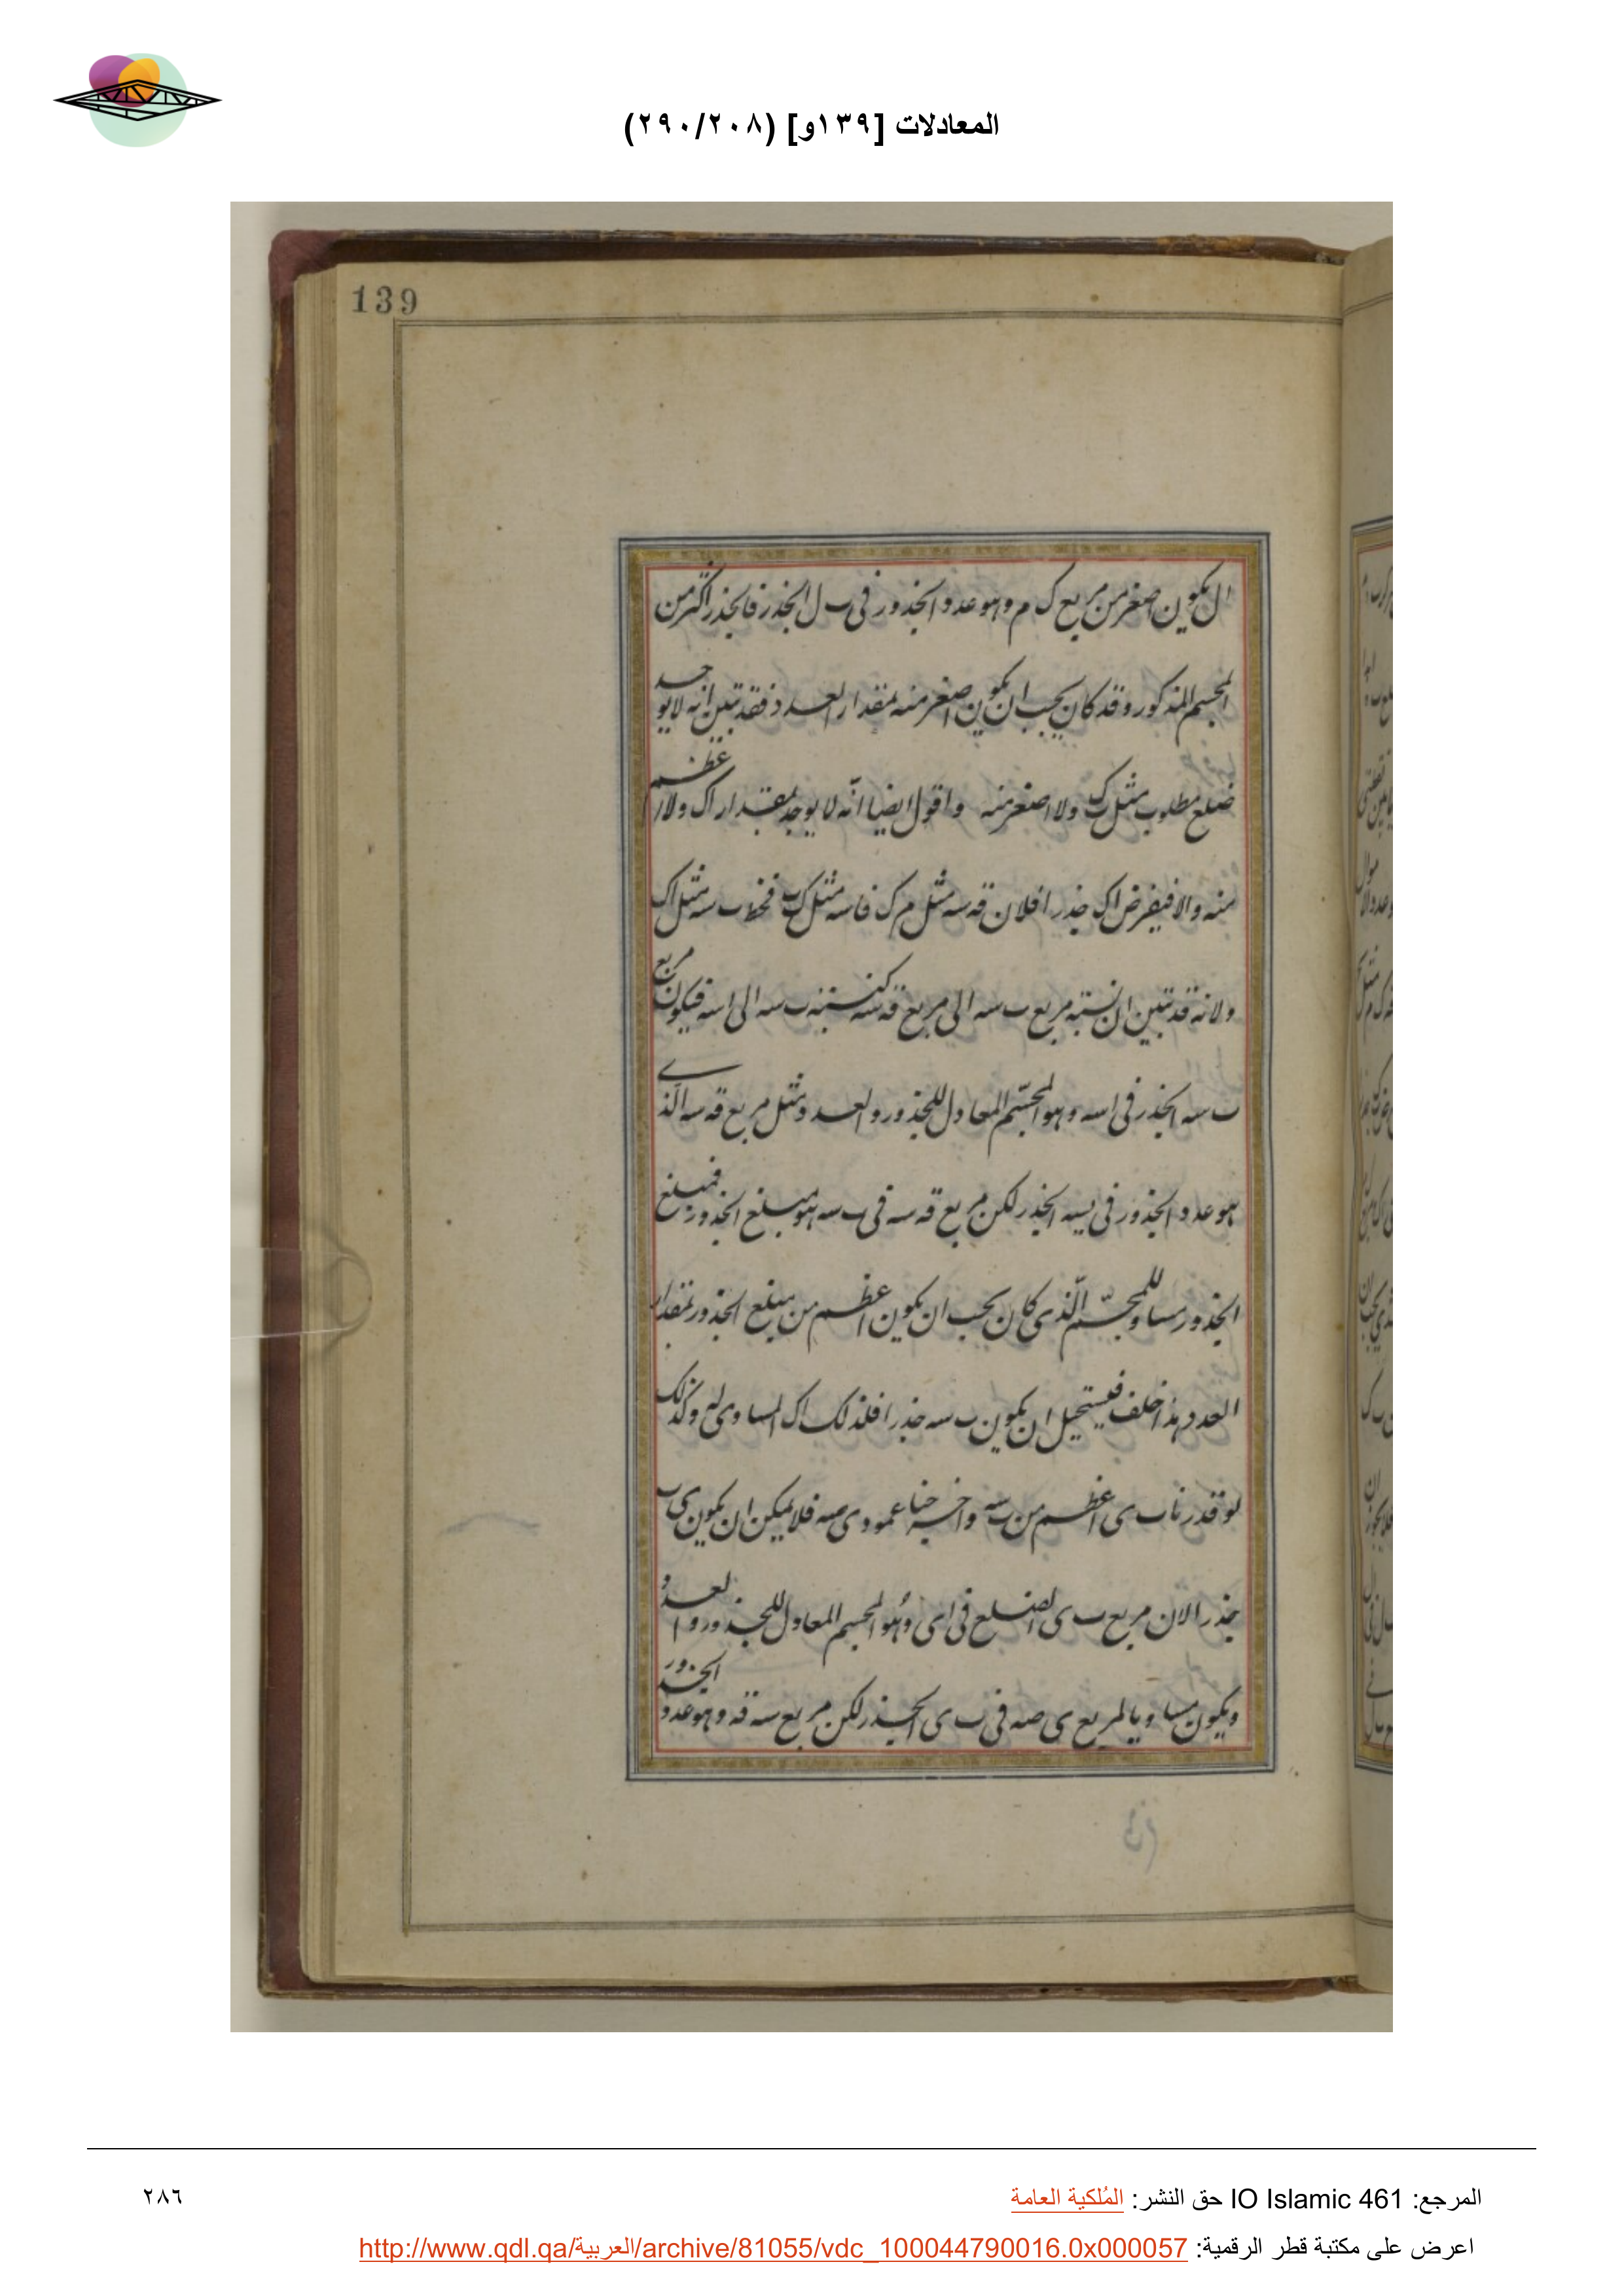 المعادلات [١٣٩و] (٢٩٠/٢٠٨)
139
ال يكون اصغر من مربع ك م وهو عدد الجذور فى ب ل الجذر فالجذر اكثر من
المجسم المذكور وقد كان يجب ان يكون اصغر منه بمقدار العدد فقد تبين انه لا يوجد
ضلع مطلوب مثل ب ك ولا اصغر منه واقول ايضا انه لا يوجد بمقدار اك ولا اعظم
منه والا فيفرض اك جذرا فلان قه سه مثل م ك فاسه مثل ك ب فخط ب سه مثل اك
ولانه قد تبين ان نسبة مربع ب سه الى مربع قه سه كنسبة ب سه الى اسه فيكون مربع
ب سه الجذر فى اسه وهو المجسم المعادل للجذور والعدد مثل مربع قه سه الذى
هو عدد الجذور فى ب سه الجذر لكن مربع قه سه فى ب سه هو مبلغ الجذور فمبلغ
الجذور مساو للمجسم الذى كان يجب ان يكون اعظم من مبلغ الجذور بمقدار
العدد هذا خلف فيستحيل ان يكون ب سه جذرا فلذلك اك المساوى له وكذلك
لو قدرنا ب ى اعظم من ب سه واخرجنا عمود ى صه فلا يمكن ان يكون ى ب
جذرا لان مربع ب ى الضلع فى اى وهو المجسم المعادل للجذور والعدد
ويكون مساويا لمربع ى صه فى ب ى الجذر لكن مربع سه قه وهو عدد الجذور
المرجع: IO Islamic 461 حق النشر: المُلكية العامة
٢٨٦
اعرض على مكتبة قطر الرقمية: http://www.qdl.qa/العربية/archive/81055/vdc_100044790016.0x000057